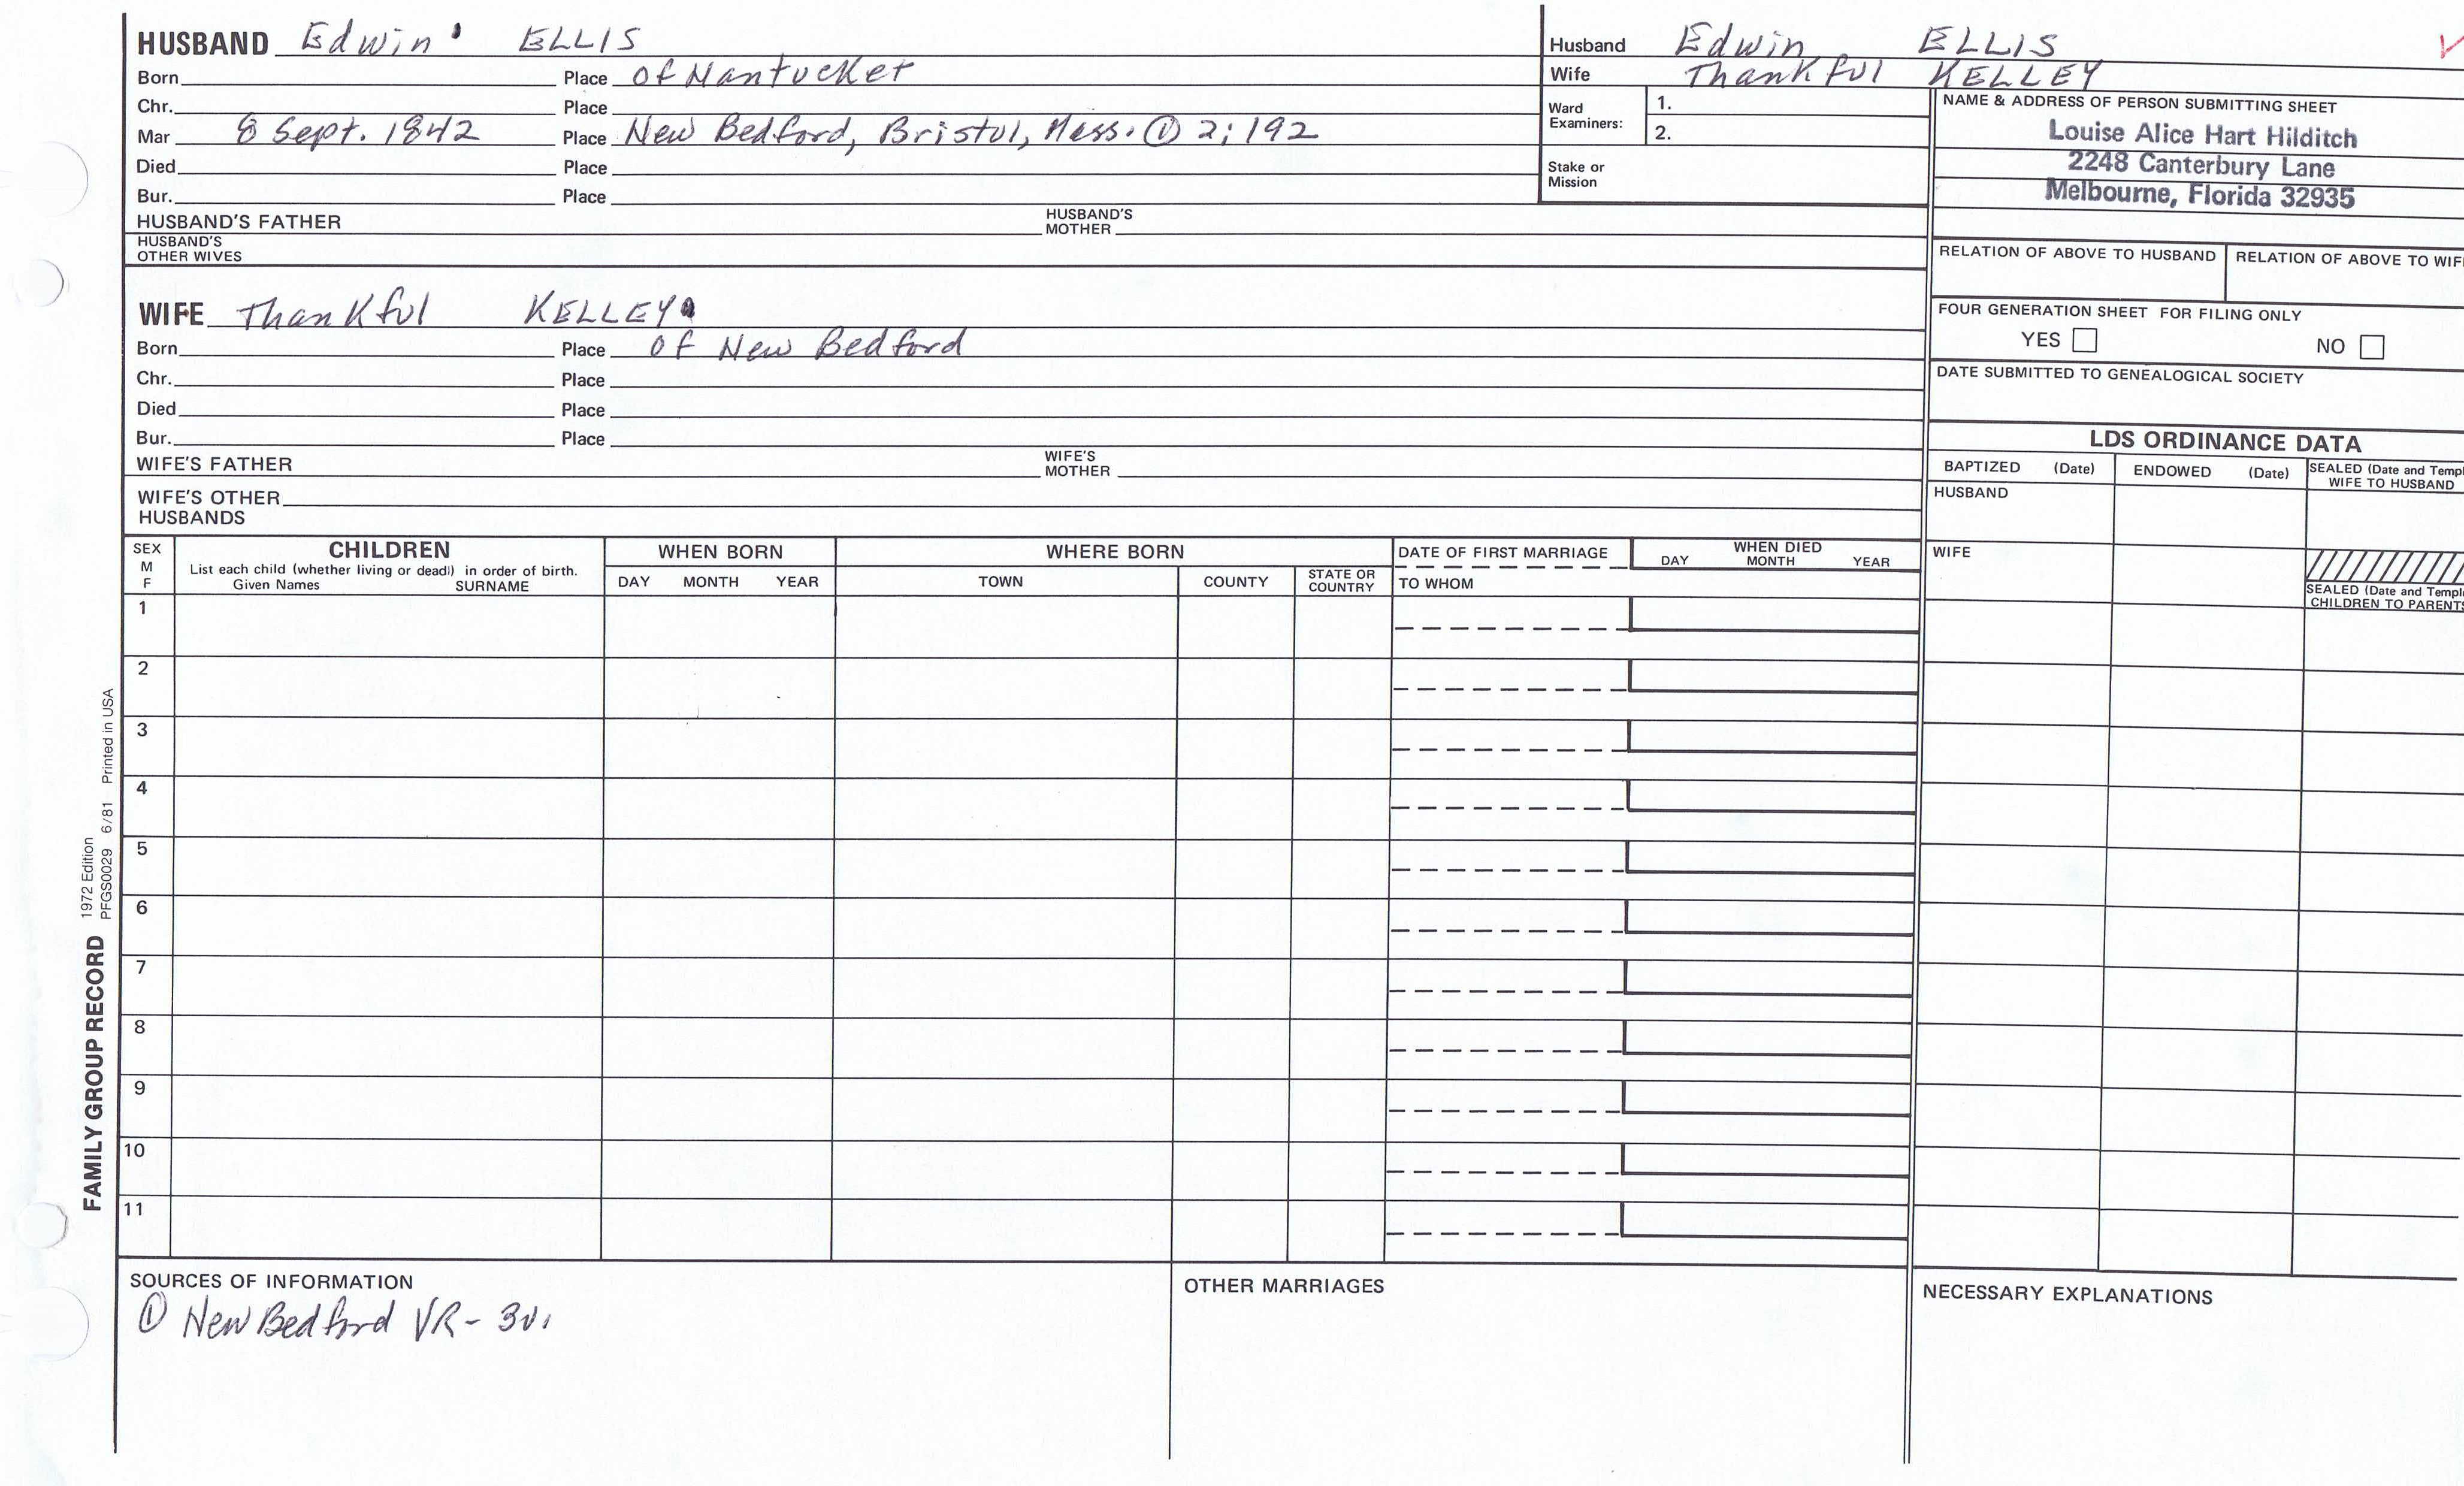 HUSBAND Edwin ELLIS
Born Place of Nantucket
Chr. Place
Mar 8 Sept. 1842 Place New Bedford, Bristol, Mass. ① 2:192
Died Place
Bur. Place
HUSBAND'S FATHER HUSBAND'S MOTHER
HUSBAND'S OTHER WIVES
Husband Edwin ELLIS
Wife Thankful KELLEY
Ward Examiners: 1.
2.
Stake or Mission
NAME & ADDRESS OF PERSON SUBMITTING SHEET
Louise Alice Hart Hilditch
2248 Canterbury Lane
Melbourne, Florida 32935
RELATION OF ABOVE TO HUSBAND RELATION OF ABOVE TO WIF
WIFE Thankful KELLEY
Born Place of New Bedford
Chr. Place
Died Place
Bur. Place
WIFE'S FATHER WIFE'S MOTHER
WIFE'S OTHER HUSBANDS
FOUR GENERATION SHEET FOR FILING ONLY
YES NO
DATE SUBMITTED TO GENEALOGICAL SOCIETY
LDS ORDINANCE DATA
BAPTIZED (Date) ENDOWED (Date) SEALED (Date and Templ
WIFE TO HUSBAND
HUSBAND
WIFE
SEALED (Date and Templ
CHILDREN TO PARENTS
SEX M F
CHILDREN
List each child (whether living or dead) in order of birth.
Given Names SURNAME
WHEN BORN
DAY MONTH YEAR
WHERE BORN
TOWN COUNTY STATE OR COUNTRY
DATE OF FIRST MARRIAGE
TO WHOM
WHEN DIED
DAY MONTH YEAR
1
2
3
4
5
6
7
8
9
10
11
SOURCES OF INFORMATION
① New Bedford VR- 3v.
OTHER MARRIAGES
NECESSARY EXPLANATIONS
FAMILY GROUP RECORD
1972 Edition
PFGS0029 6/81 Printed in USA